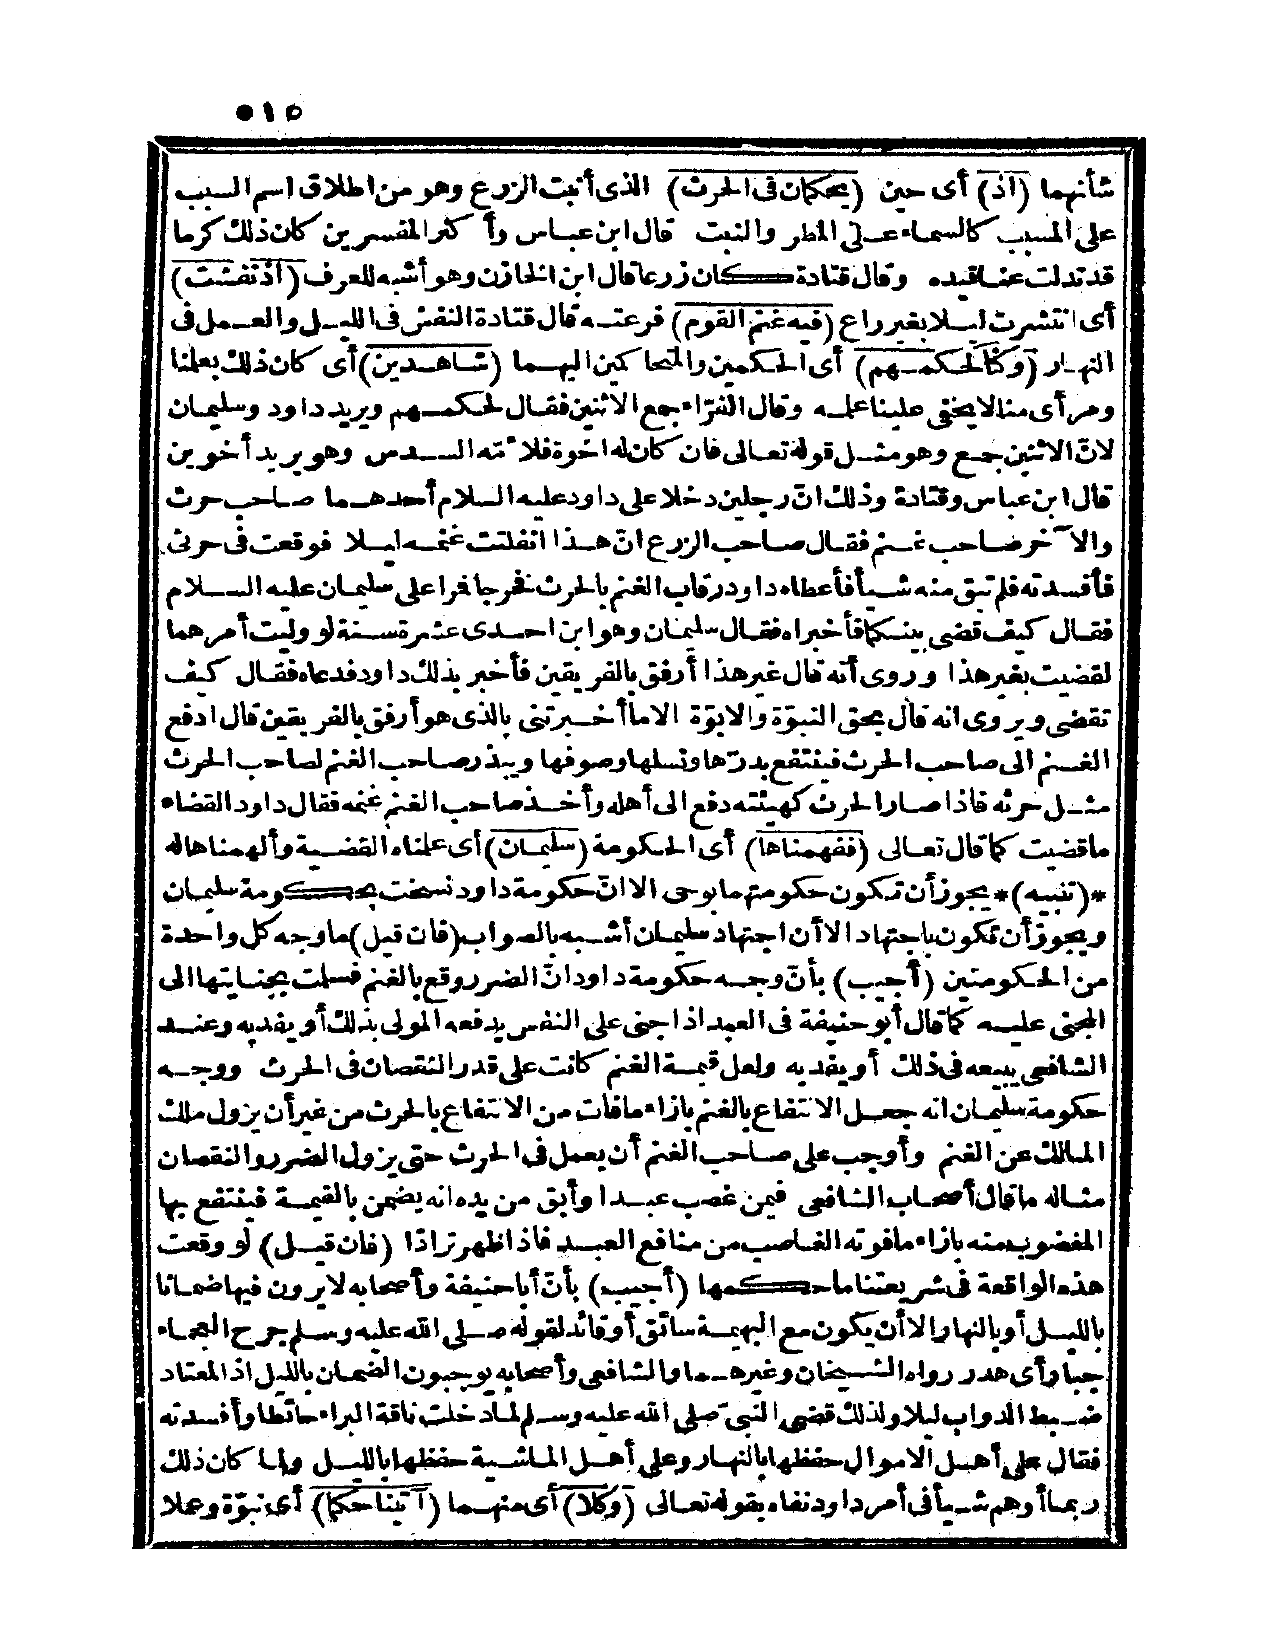 ٥١٥
شأنهما (اذ) أى حين (يحكمان فى الحرث) الذى أنبت الزرع وهو من اطلاق اسم السبب
على المسبب كالسماء على المطر والنبت قال ابن عباس وأكثر المفسرين كان ذلك كرما
قد تدلت عناقيده وقال قتادة كان زرعا قال ابن الخازن وهو أشبه للعرف (اذ نفشت)
أى انتشرت ليلا بغير راع (فيه غنم القوم) فرعته قال قتادة النفش فى الليل والعمل فى
النهار (وكنا لحكمهم) أى الحكمين والمتحاكمين اليهما (شاهدين) أى كان ذلك بعلمنا
ومرأى منا لا يخفى علينا علمه وقال الفرّاء جمع الاثنين فقال لحكمهم ويريد داود وسليمان
لانّ الاثنين جمع وهو مثل قوله تعالى فان كان له اخوة فلأمّه السدس وهو يريد أخوين
قال ابن عباس وقتادة وذلك انّ رجلين دخلا على داود عليه السلام أحدهما صاحب حرث
والآخر صاحب غنم فقال صاحب الزرع انّ هذا انفلتت غنمه ليلا فوقعت فى حرثى
فأفسدته فلم تبق منه شيأ فأعطاه داود رقاب الغنم بالحرث فخرجا فمرا على سليمان عليه السلام
فقال كيف قضى بينكما فأخبراه فقال سليمان وهو ابن احدى عشرة سنة لو وليت أمرهما
لقضيت بغير هذا وروى أنه قال غير هذا أرفق بالفريقين فأخبر بذلك داود فدعاه فقال كيف
تقضى ويروى انه قال بحق النبوّة والابوّة الا ما أخبرتنى بالذى هو أرفق بالفريقين قال ادفع
الغنم الى صاحب الحرث فينتفع بدرّها ونسلها وصوفها ويبذر صاحب الغنم لصاحب الحرث
مثل حرثه فاذا صار الحرث كهيئته دفع الى أهله وأخذ صاحب الغنم غنمه فقال داود القضاء
ما قضيت كما قال تعالى (ففهمناها) أى الحكومة (سليمان) أى علمناه القضية وألهمناها له
*(تنبيه)* يجوز أن تكون حكومتهما بوحى الا انّ حكومة داود نسخت بحكومة سليمان
ويجوز أن تكون باجتهاد الا أن اجتهاد سليمان أشبه بالصواب (فان قيل) ما وجه كل واحدة
من الحكومتين (أجيب) بأنّ وجه حكومة داود انّ الضرر وقع بالغنم فسلمت بجنايتها الى
المجنى عليه كما قال أبو حنيفة فى العبد اذا جنى على النفس يدفعه المولى بذلك أو يفديه وعند
الشافعى يبيعه فى ذلك أو يفديه ولعل قيمة الغنم كانت على قدر النقصان فى الحرث ووجه
حكومة سليمان انه جعل الانتفاع بالغنم بازاء ما فات من الانتفاع بالحرث من غير أن يزول ملك
المالك عن الغنم وأوجب على صاحب الغنم أن يعمل فى الحرث حتى يزول الضرر والنقصان
مثاله ما قال أصحاب الشافعى فيمن غصب عبدا وأبق من يده انه يضمن بالقيمة فينتفع بها
المغضوب منه بازاء ما فوته الغاصب من منافع العبد فاذا ظهر ترادّا (فان قيل) لو وقعت
هذه الواقعة فى شريعتنا ما حكمها (أجيب) بأنّ أبا حنيفة وأصحابه لا يرون فيها ضمانا
بالليل أو بالنهار الا أن يكون مع البهيمة سائق أو قائد لقوله صلى الله عليه وسلم جرح العجماء
جبار أى هدر رواه الشيخان وغيرهما والشافعى وأصحابه يوجبون الضمان بالليل اذ المعتاد
ضبط الدواب ليلا ولذلك قضى النبىّ صلى الله عليه وسلم لما دخلت ناقة البراء حائطا وأفسدته
فقال على أهل الاموال حفظها بالنهار وعلى أهل الماشية حفظها بالليل ولما كان ذلك
ربما أوهم شيأ فى أمر داود نفاه بقوله تعالى (وكلا) أى منهما (آتينا حكما) أى نبوّة وعملا